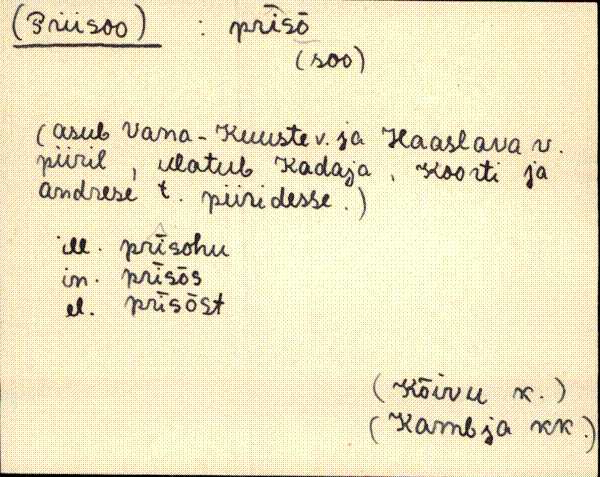 (Priisoo) : prīsō
(soo)
(asub Vana-Kuuste v. ja Haaslava v.
piiril, ulatub Kadaja, Koorti ja
andrese t. piiridesse.)
ill. prīsohu
in. prīsōs
el. prīsōst
(Kõivu k.)
(Kambja kk.)